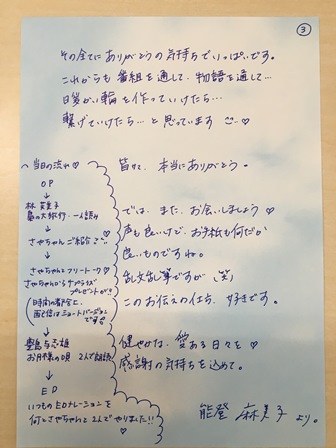 ③
その全てにありがとうの気持ちでいっぱいです。
これからも 番組を通して、物語を通して…
繋げていけたら… と思っています
当日の流れ♡
OP
↓
林 芙美子
一人読み
↓
さやちゃん ご紹介
↓
さやちゃんとフリートーク♡
さやちゃんからサプライズ
プレゼントが!!
(時間の都合で、
配信はショートバージョン
です
↓
豊島与志雄
お月様の唄 2人で朗読
↓
ED
いつものEDナレーションを
何とさやちゃんと2人でやりました!!
皆々、本当にありがとう。
では、また、お会いしましょう♡
声も良いけど、お手紙も何だか
良いものですね。
乱文乱筆ですが、(笑)
このお伝えの仕方、好きです。
健やかな、愛ある日々を♡
感謝の気持ちを込めて。
能登 麻美子 より。